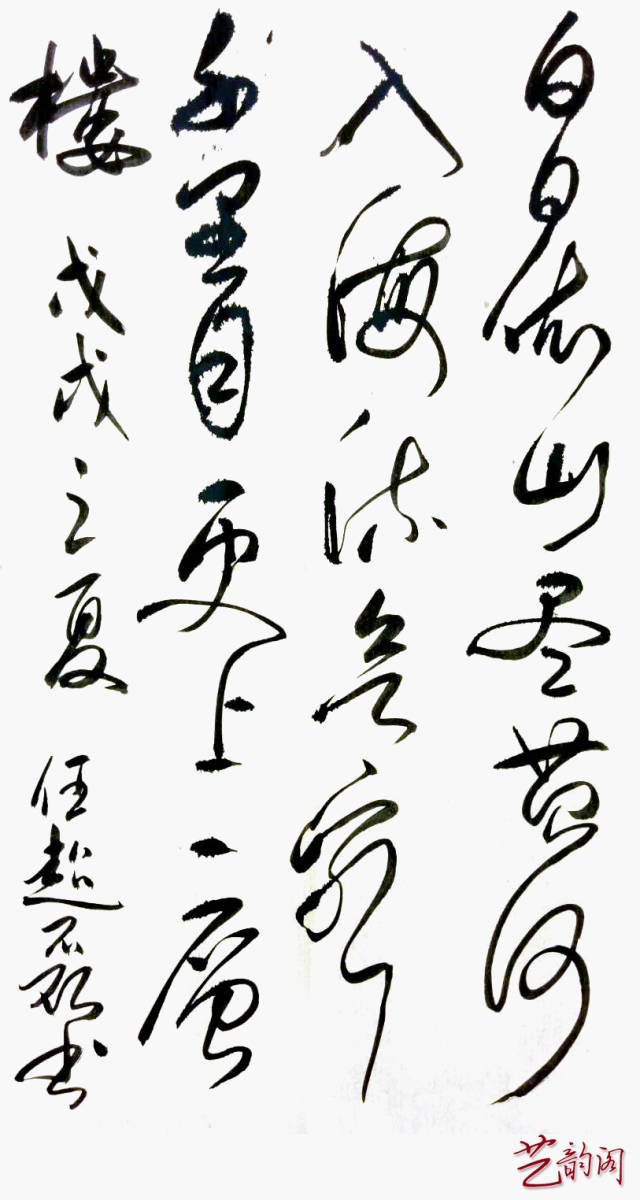 白日依山尽黄河
入海流欲穷
千里目更上一层
楼 戊戌之夏 任超书
艺韵阁